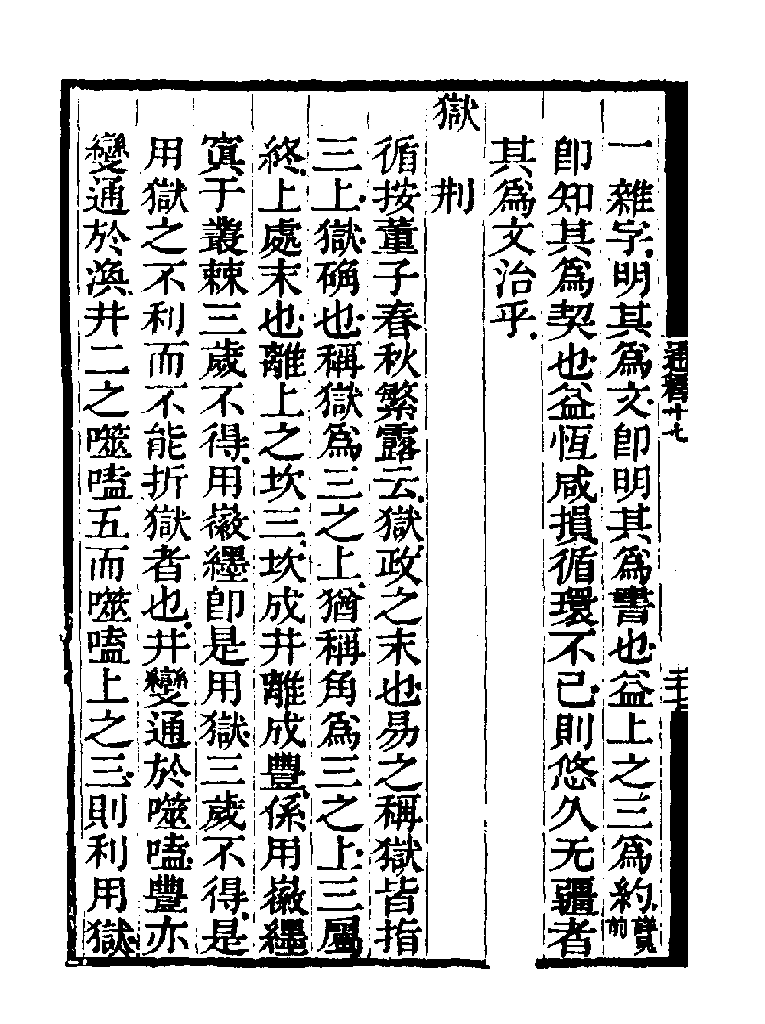 通釋十七
一雜字明其爲文卽明其爲書也益上之三爲約前
卽知其爲契也益恆咸損循環不已則悠久无疆者
其爲文治乎
獄　刑
循按董子春秋繁露云獄政之末也易之稱獄皆指
三上獄确也稱獄爲三之上猶稱角爲三之上三屬
終上處末也離上之坎三坎成井離成豐係用徽纆
寘于叢棘三歲不得用徽纆卽是用獄三歲不得是
用獄之不利而不能折獄者也井變通於噬嗑豐亦
變通於渙井二之噬嗑五而噬嗑上之三則利用獄